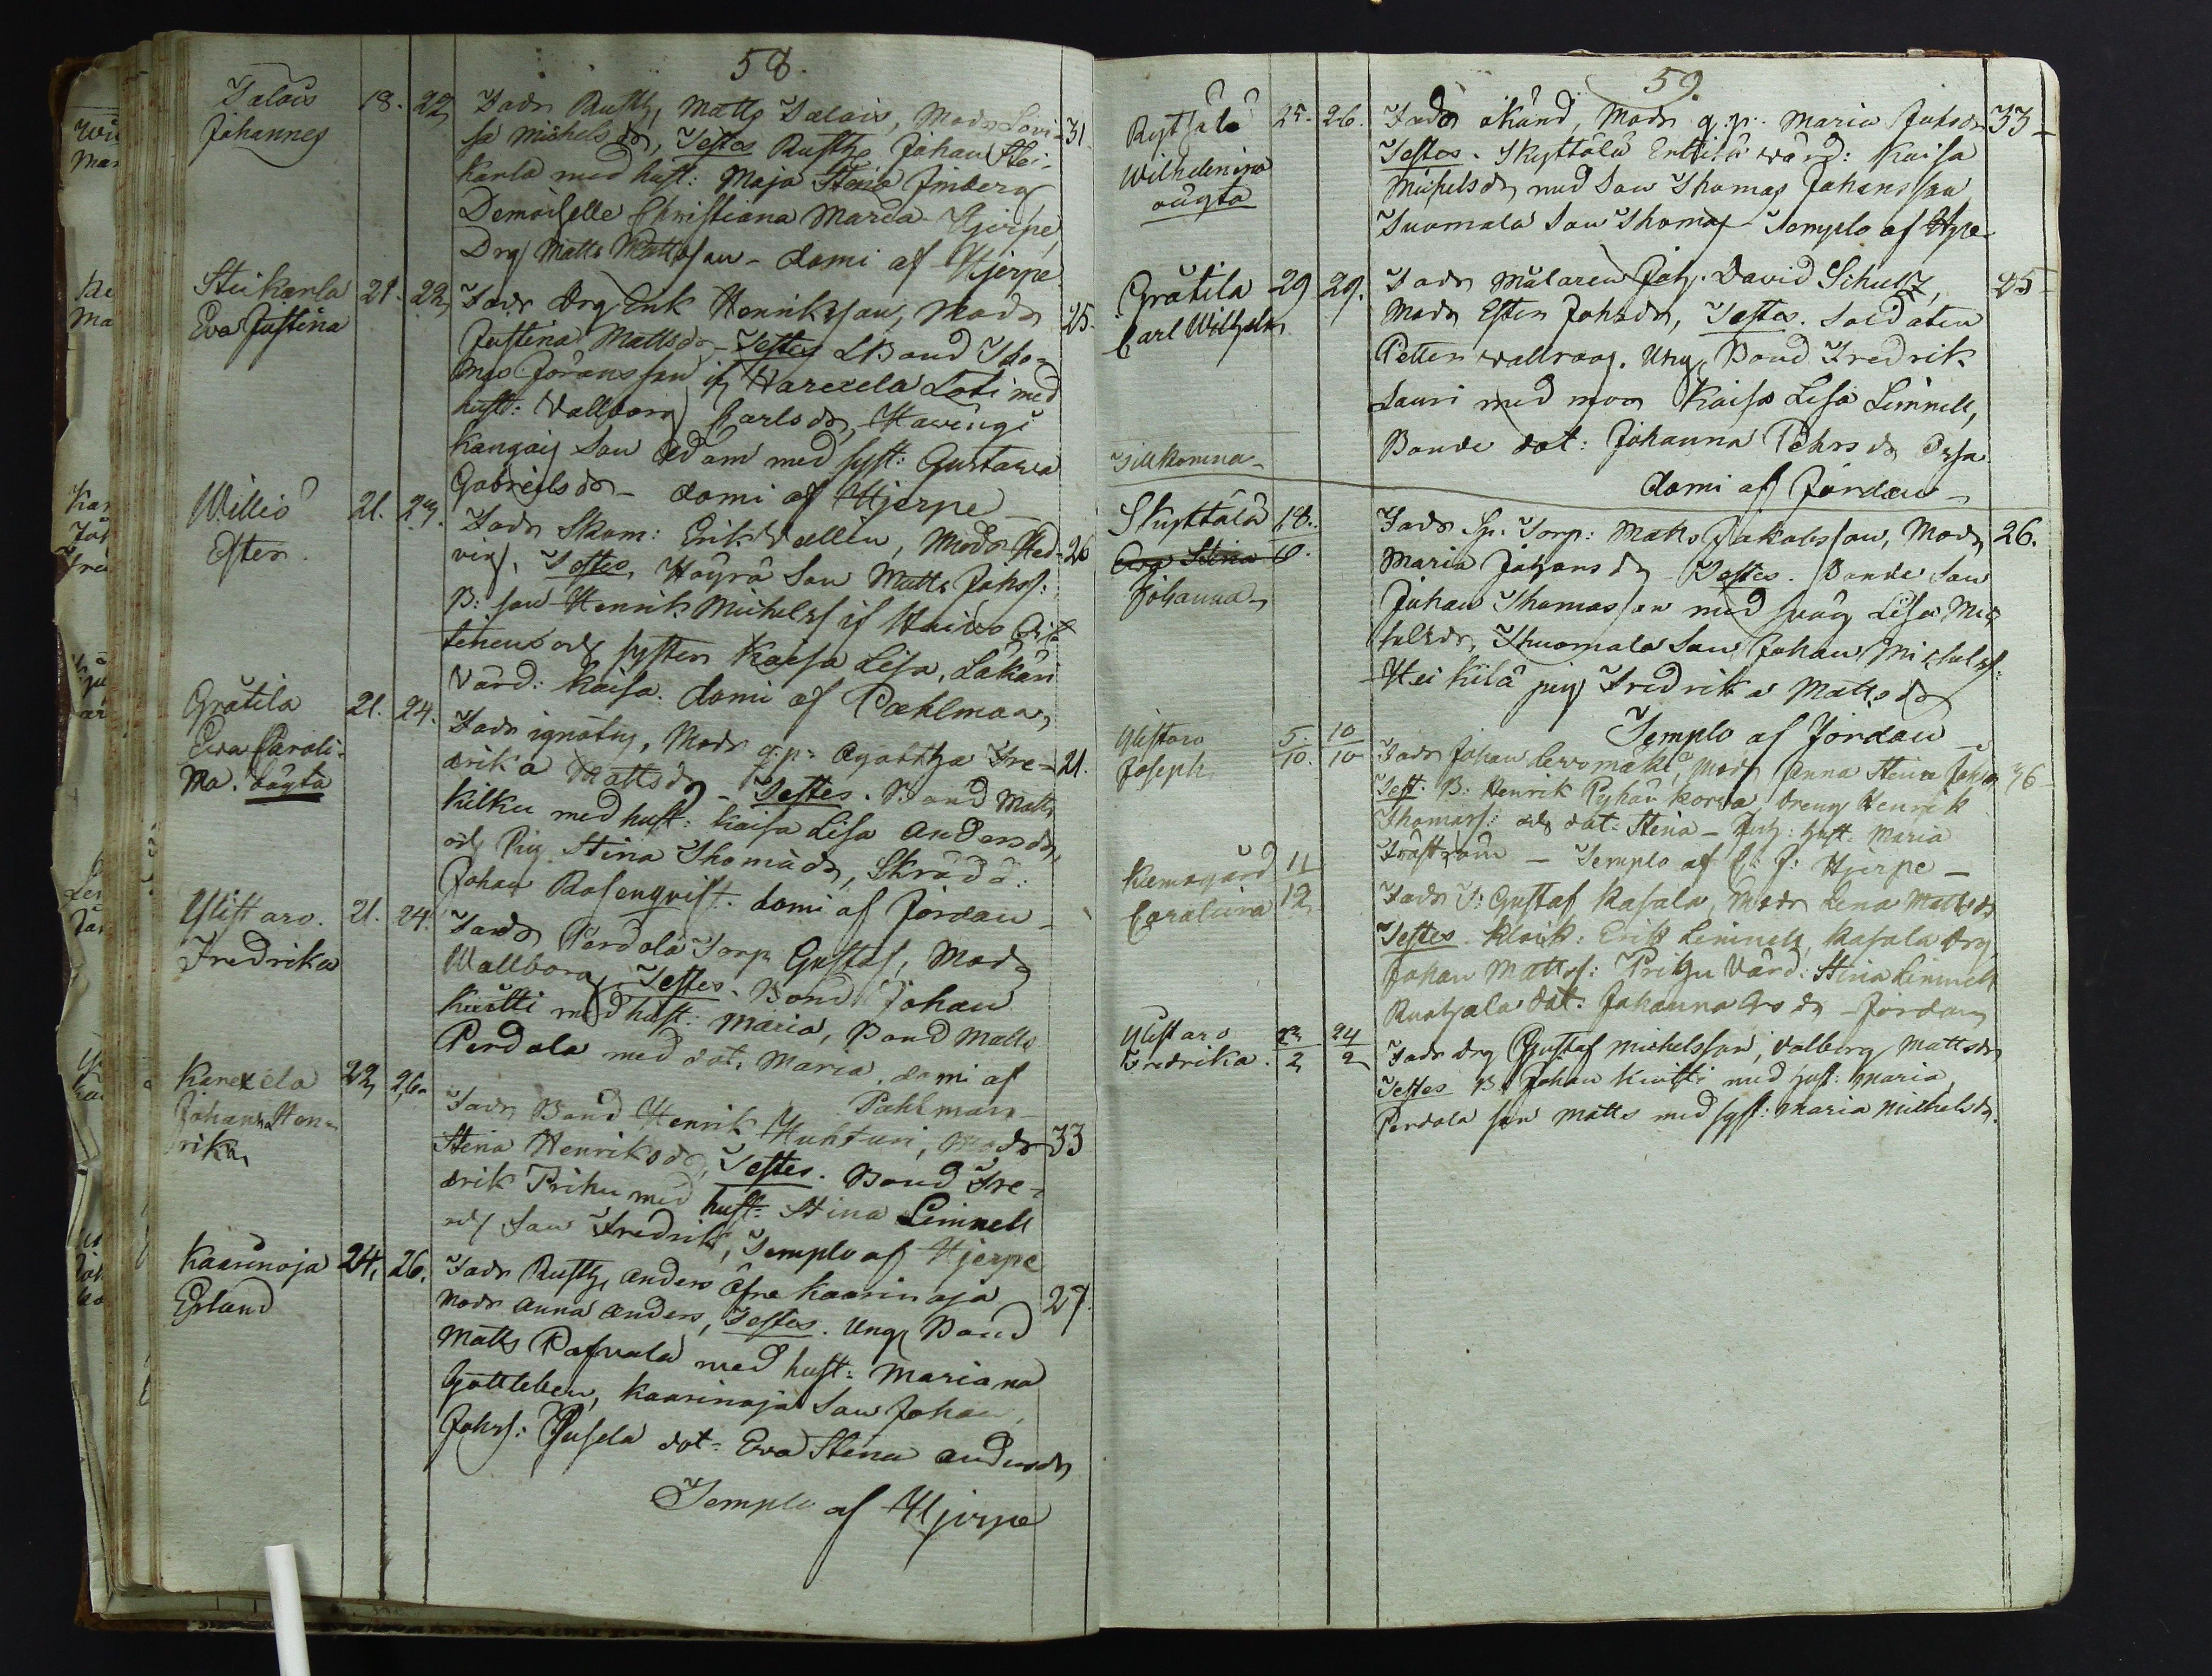 58.
Talois
Johannes
18. 22
Fadr Rusth. Matts Talois, Modr Lovi-
sa Michelsdr, Testes Rusth. Johan Stei-
karla med hust: Maja Stina Limberg
Demoiselle Christiana Marda Hjerpe,
Drg Matts Mattsson - domi af Hjerpe
31
Steikarla
Eva Justina
21. 22
Fadr Drg Erik Henriksson, Modr
Justina Mattsdr - Testes Bond Tho-
mas Göransson if Harexela Torti med
hust: Vallborg Carlsdr, Havingi
Kangais Son Adam med syst: Gustava
Gabrielsdr - domi af Hjerpe
25.
Willio
Ester.
21. 24.
Fadr Skom: Erik Vallin, Modr Hed-
vig, Testes, Höyrä Son Matts Johss:
B: son Henrik Michelss if
och syster Kaisa Lisa, Lakari
Värd: Kaisa. domi af Pahlman
26
Grätila
Eva Caroli-
na. oägta
21. 24.
Fadr ignotus, Modr q.p. Agatha Fre-
drika Mattsdr - Testes. Bond Matts
Kilku med hust: Kaisa Lisa Andersdr,
och Pig Stina Thomasdr, Skrädd:
Johan Rosenqvist. domi af Jordan
21.
Ylistaro.
Fredrika
21. 24.
Fadr Perdola Torp Gustaf, Modr
Wallborg, Testes. Bond Johan
Kiitti med hust: Maria, Bond Matts
Perdola med dot. Maria. domi af
Pahlman
Karexela
Johan Hen-
rik
22, 26.
Fadr Bond Henrik Huhturi, Modr
Stina Henriksdr, Testes. Bond Fre-
drik Prihu med hust: Stina Limnell
och Son Fredrik, Templo af Hjerpe
33
Kaarinoja
Erland
24. 26.
Fadr Rusth. Anders Öfre Kaarinoja
Modr Anna Anders, Testes. Ung Bond
Matts Rasvala med hust: Mariana
Gottleben, Kaarinoja Son Johan
Johss: Pusela dot: Eva Stina Andersdr
Templo af Hjerpe
27.
59.
Rytsälä
Wilhelmina
oägta
25. 26.
Fadr okänd, Modr q.p. Maria Johsdr
Testes. Skyttälä Enkilä värd: Kaisa
Michelsdr med Son Thomas Johansson
Suomala Son Thomas - Templo af Hjre
33
Grätila
Carl Wilhelm
29 29.
Fadr Målaren Joh. David Schultz,
Modr Ester Johsdr, Testes. Soldaten
Petter Wallroos. Ung Bond Fredrik
Lauri med mor Kaisa Lisa Limnell,
Bonde dot: Johanna Pehrsdr
domi af Jordan
25
Tillkomna
Skyttälä
Eva Stina
Johanna
18.
8.
Fadr Sp. Torp: Matts Jakobsson, Modr
Maria Johansdr - Testes. Bonde Son
Johan Thomasson med svåg Lisa Mi-
chelsdr, Thuomala Son Johan Michelss:
Heikilä pig Fredrika Mattsdr
Templo af Jordan
26.
Ylistaro
Joseph
5/10. 10/10
Fadr Johan Levomäki, Modr Anna Stina Johsdr
Test. B: Henrik Pyhän Korva, Dreng Henrik
Thomass: och dot: Stina - Inh: hust: Maria
Fröström - Templo af C: J: Hjerpe
36
Klemsgård
Carolina
11/12
Fadr T: Gustaf Kasala, Modr Lena Mattsdr
Testes Klock: Erik Limnell, Kasala Drg
Johan Mattss: Prihu Värd: Stina Limnell
Ruohjala dot. Johanna Grsdr - Jordan
Ylistaro
Fredrika.
22/2 24/2
Fadr Drg Gustaf Michelsson, Valborg Mattsdr
Testes B. Johan Kiitti med hust: Maria,
Perdola Son Matts med syst: Maria Michelsdr.